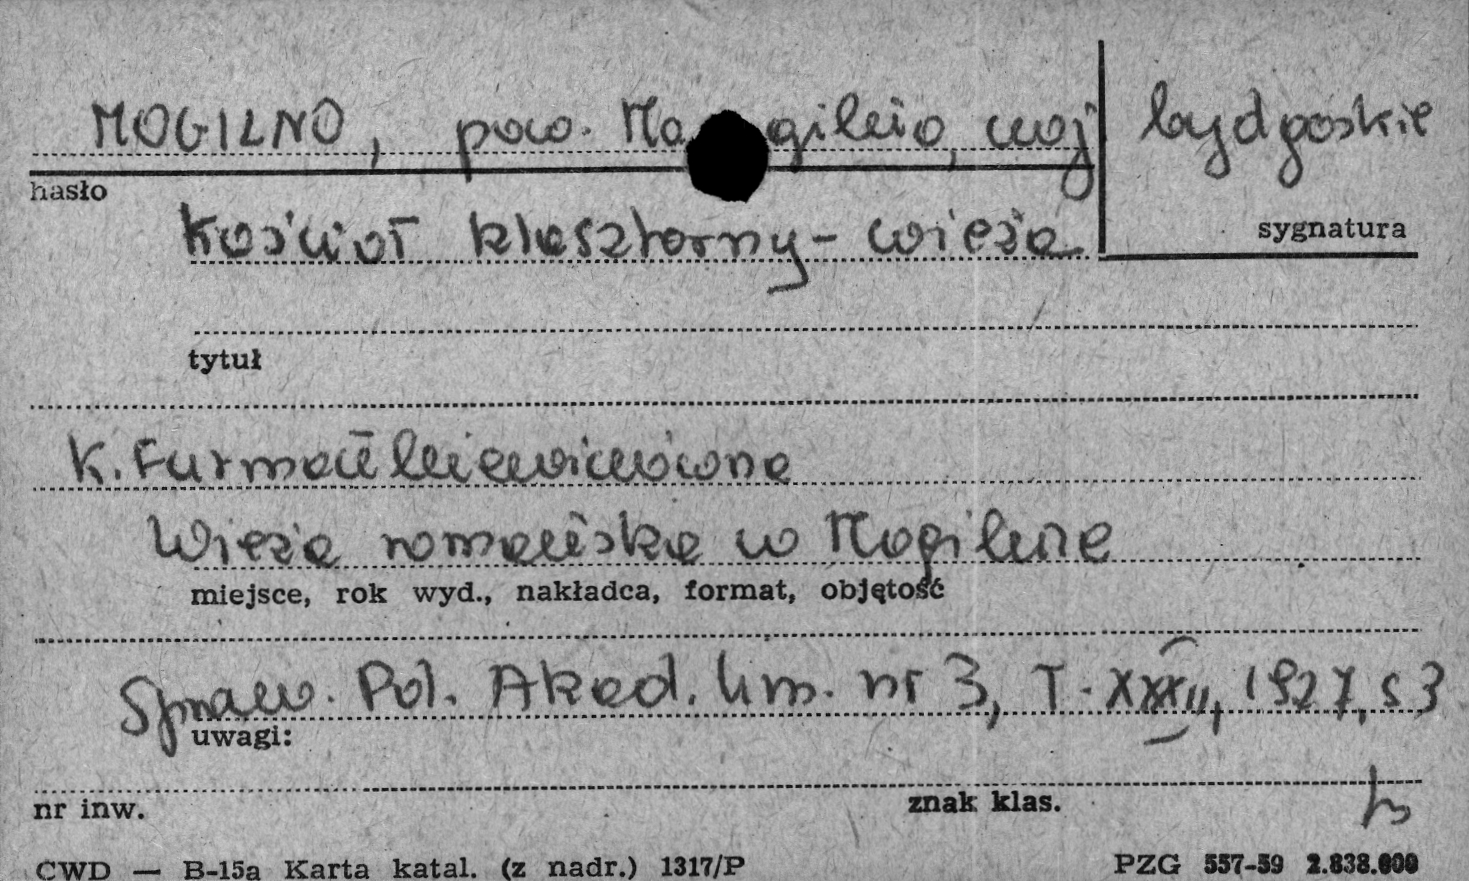 MOGILNO, pow. Mogilno, woj bydgoskie
hasło
Kościół klasztorny - wieża
sygnatura
tytuł
K. Furmankiewiczówna
Wieża romańska w Mogilnie
miejsce, rok wyd., nakładca, format, objętość
Spraw. Pol. Akad. Um. nr 3, T. XXXII, 1927, s 3
uwagi:
nr inw.
znak klas.
CWD — B-15a Karta katal. (z nadr.) 1317/P
PZG 557-59 2.838.000